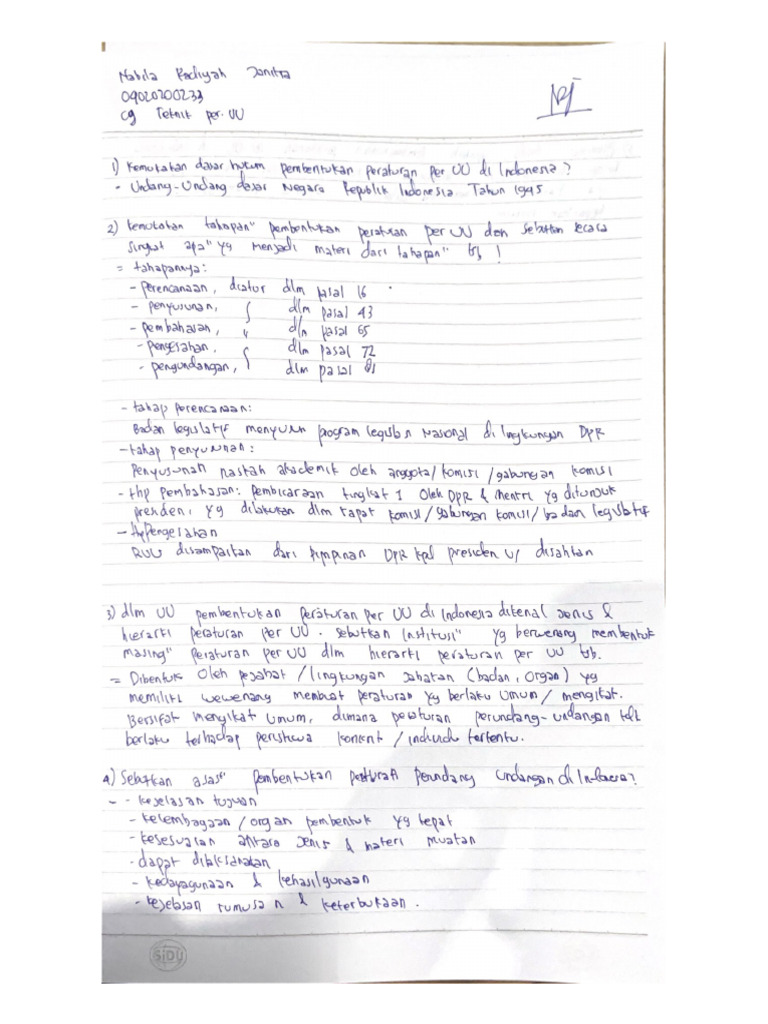 Nabila Radiyah Janitra
09020200233
C9 Teknik per-UU
1) Kemukakan dasar hukum pembentukan peraturan per UU di Indonesia?
- Undang-Undang dasar Negara Republik Indonesia Tahun 1945
2) Kemukakan tahapan" pembentukan peraturan per UU dan sebutkan secara
singkat apa" yg menjadi materi dari tahapan" tsb !
= tahapannya:
- perencanaan, diatur dlm pasal 16
- penyusunan, dlm pasal 43
- pembahasan, " dlm pasal 65
- pengesahan, dlm pasal 72
- pengundangan, dlm pasal 81
- tahap perencanaan:
Badan legislatif menyusun program legislasi Nasional di lingkungan DPR
- tahap penyusunan:
Penyusunan naskah akademik oleh anggota/komisi/gabungan komisi
- thp pembahasan: pembicaraan tingkat 1 oleh DPR & mentri yg ditunjuk
presiden, yg dilakukan dlm rapat komisi/gabungan komisi/badan legislatif
- thp Pengesahan
RUU disampaikan dari pimpinan DPR kpd presiden u/ disahkan
3) dlm UU pembentukan peraturan per UU di Indonesia dikenal jenis &
hierarki peraturan per UU. sebutkan Institusi" yg berwenang membentuk
masing" peraturan per UU dlm hierarki peraturan per UU tsb.
= Dibentuk oleh pejabat/lingkungan jabatan (badan, organ) yg
memiliki wewenang membuat peraturan yg berlaku umum/mengikat.
Bersifat mengikat umum, dimana peraturan perundang-undangan tdk
berlaku terhadap peristiwa konkret/individu tertentu.
4) Sebutkan asas" pembentukan peraturan perundang undangan di Indonesia?
- - kejelasan tujuan
- kelembagaan/organ pembentuk yg tepat
- kesesuaian antara jenis & materi muatan
- dapat dilaksanakan
- kedayagunaan & kehasilgunaan
- kejelasan rumusan & keterbukaan.
SiDU